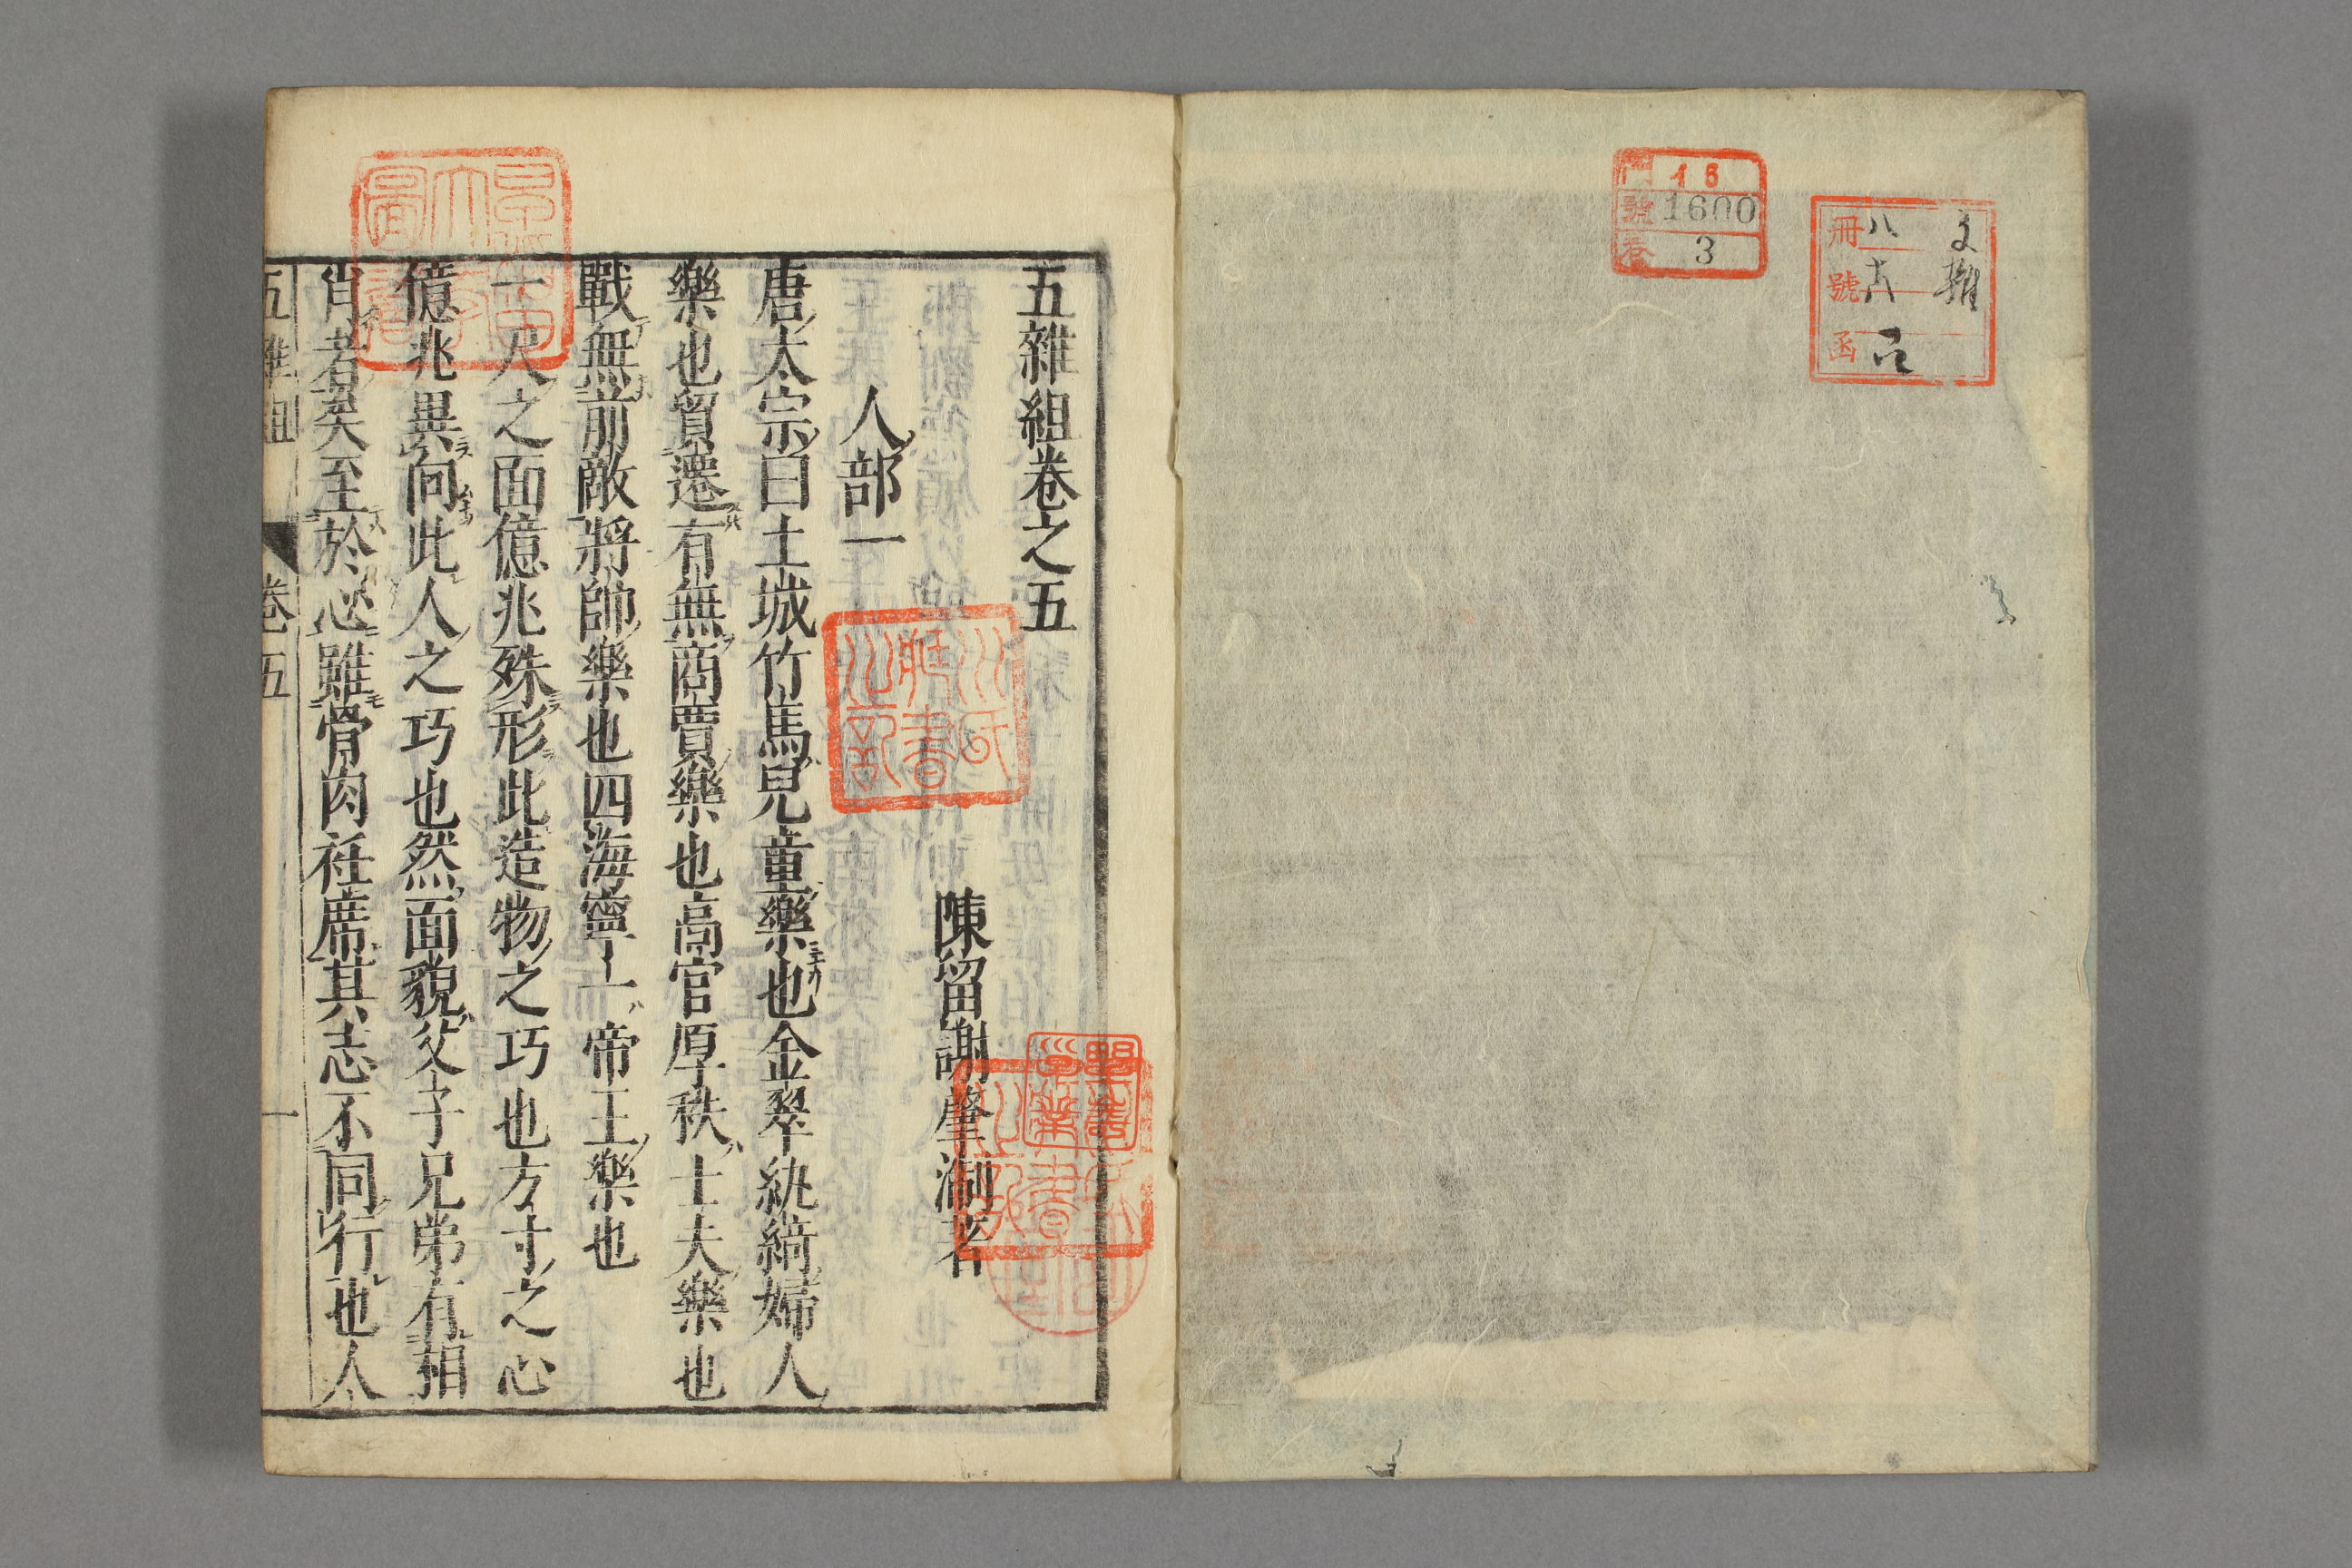 門 16
號 1600
卷 3
文雜
冊 八
號 六
函
五雜組卷之五
陳留謝肇淛著
人部一
唐太宗曰土城竹馬兒童樂也金翠紈綺婦人
樂也貿遷有無商賈樂也高官厚秩士夫樂也
戰無前敵將帥樂也四海寧一帝王樂也
一尺之面億兆殊形此造物之巧也方寸之心
億兆異向此人之巧也然面貌父子兄弟有相
肖者矣至於心雖骨肉衽席其志不同行也人
五雜組 卷五 一